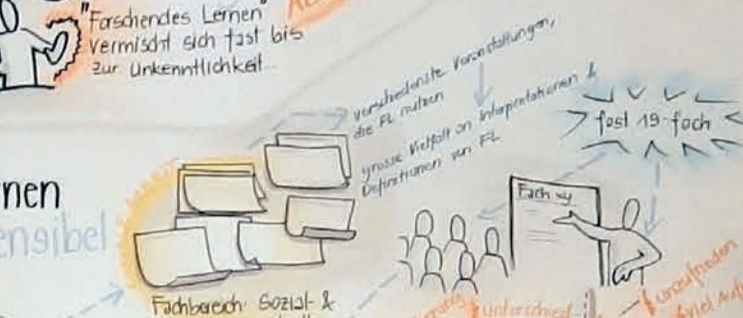 "Forschendes Lernen"
vermischt sich fast bis
zur Unkenntlichkeit...
verschiedenste Veranstaltungen,
die FL nutzen
grosse Vielfalt an Interpretationen &
Definitionen von FL
fast 19-fach
nen
ensibel
Fach xy
Fachbereich: Sozial- &
unterschied
unzufrieden
viel